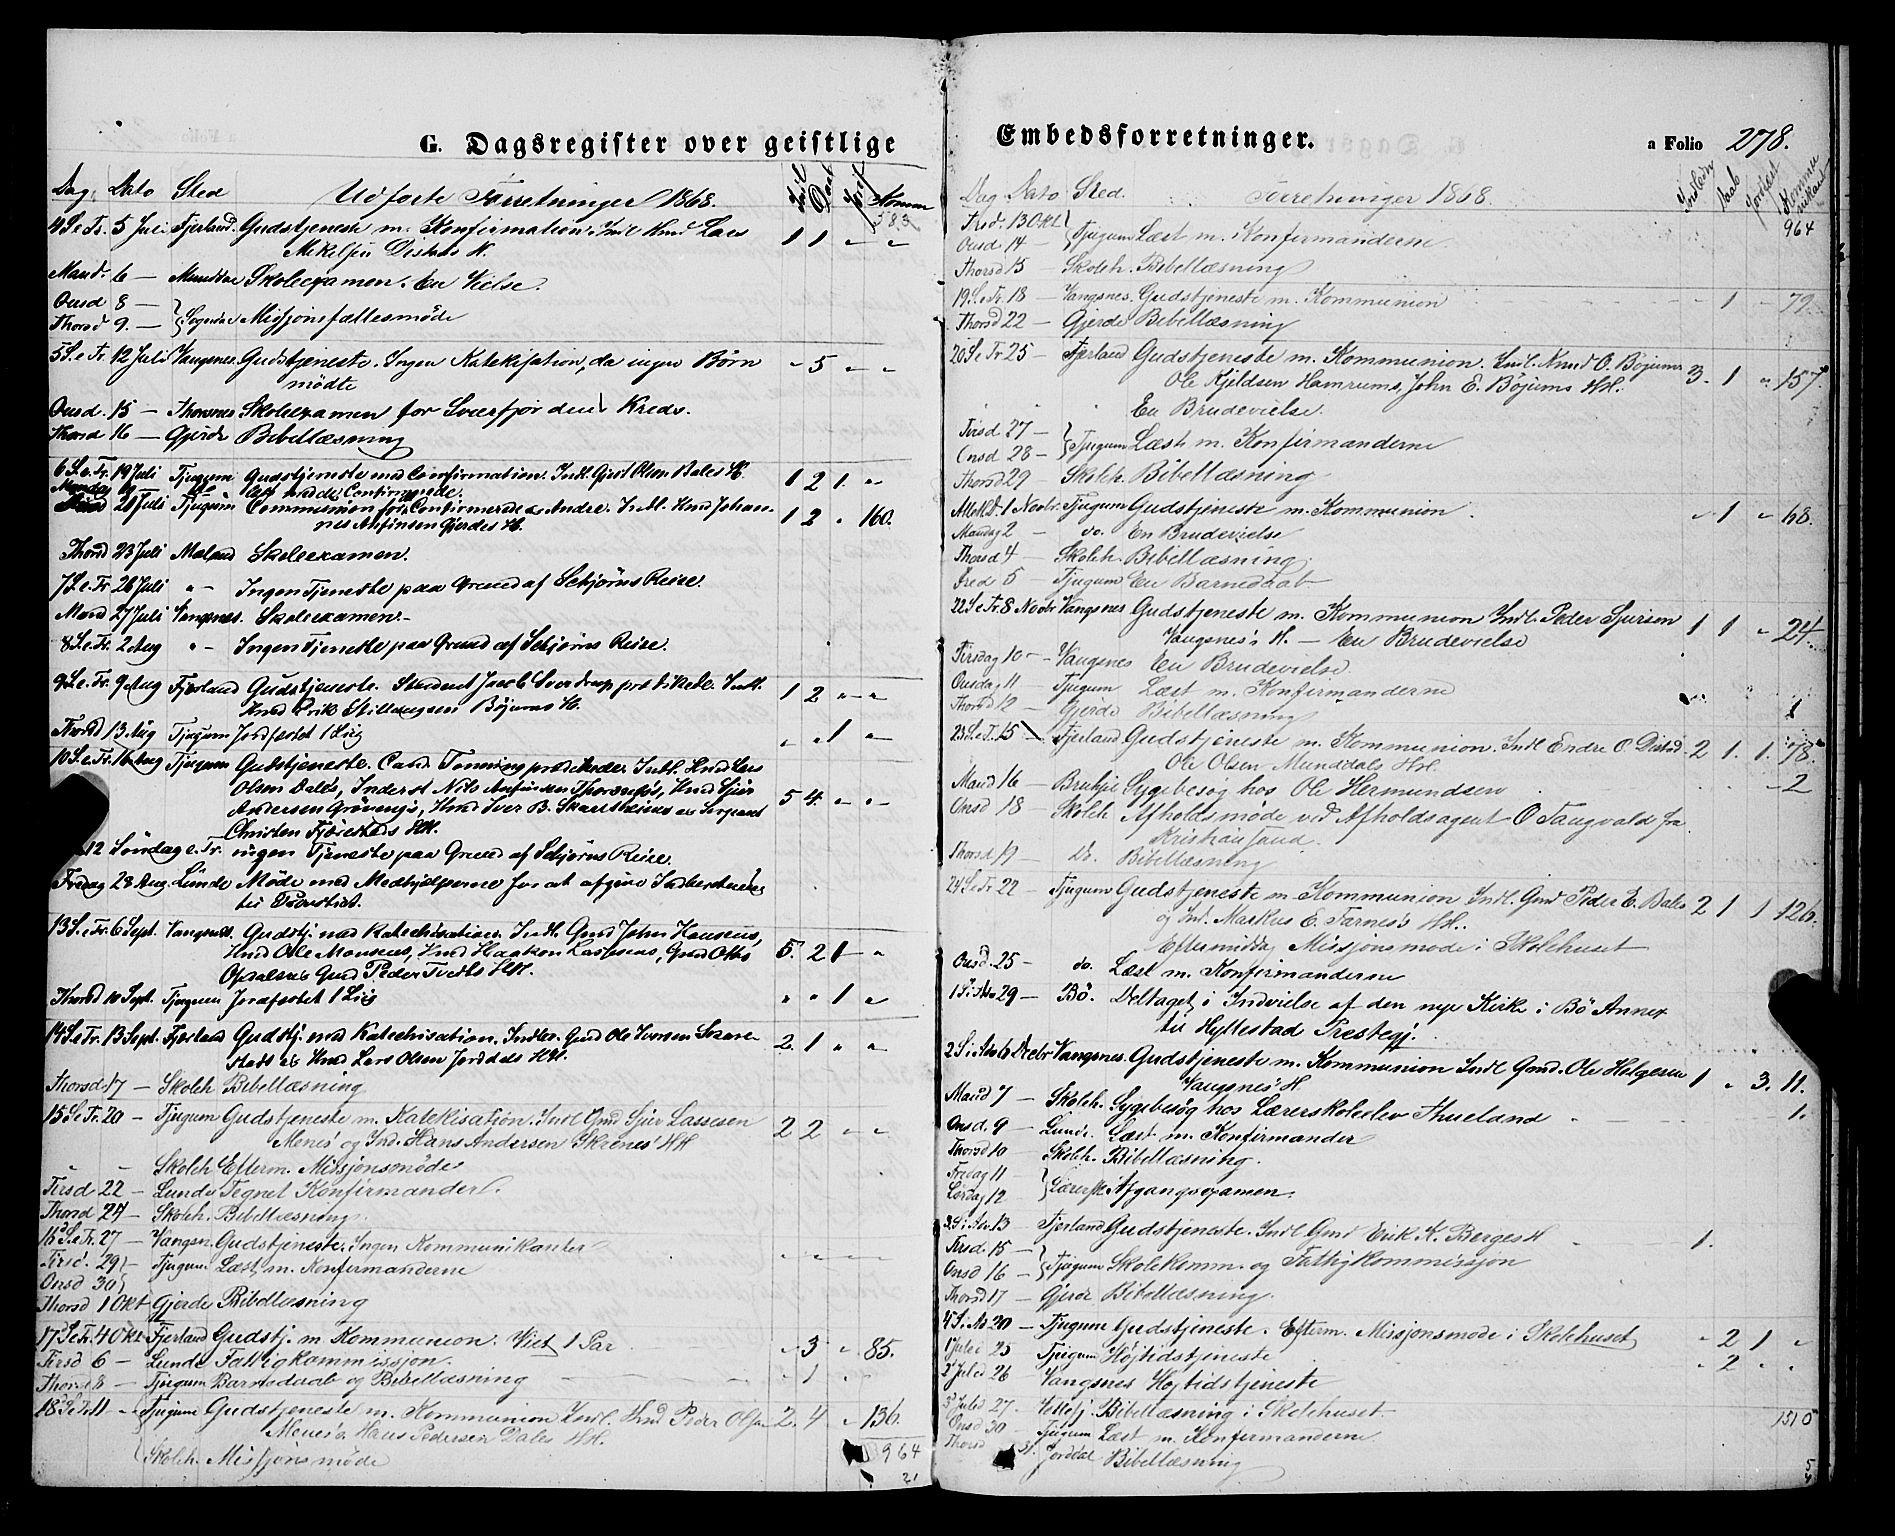 G. Dagsregister over geistlige
Dag. Dato Sted Udførte Forretninger 1868. Indl Daab Jordf Komm
583
4 S.e.Tr. 5 Juli Fjerland. Gudstjeneste m. Konfirmation. Indl. Knud Lars 1 1 " "
Mikelsen Distads K.
Mand. 6 — Munddal Skoleexamen. En Vielse.
Onsd 8 —
Thorsd 9. — Sogndal Missjonsfællesmøde
5 S.e.Tr. 12 Juli Vangsnes. Gudstjeneste. Ingen Katekisation, da ingen Børn " 5 " "
mødte
Onsd. 15 — Thorsnes Skoleexamen for Sværfjordens Kreds.
Thorsd 16 — Gjerde Bibellæsning
6 S.e.Tr. 19 Juli Tjugum Gudstjeneste med Confirmation. Indl. Gjert Olsen Bales K. 1 2 1. "
Mandag 20
21 Juli Tjugum Communion for Confirmerede og Andre. Indl. Knd Johan- 1 2 " 160.
nes Anfinsen Gjerdes H.
Thorsd 23 Juli Meland Skoleexamen.
7 S.e.Tr 26 Juli " - Ingen Tjeneste paa Grund af Schjørns Reise.
Mand 27 Juli Vangsnes. Skoleexamen.-
8 S.e.Tr. 2 Aug " - Ingen Tjeneste paa Grund af Schjørns Reise.
9 S.e.Tr. 9 Aug Fjerland Gudstjeneste. Student Jacob Sverdrup prædikede. Indl. 1 2 " "
Knud Erik Bøjums H.
Thorsd 13 Aug Tjugum Jordfæstet 1 Liig " " 1 "
10 S.e.Tr. 16 Aug Tjugum Gudstjeneste. Cand. prædikede. Indl. Knd Lars
Olsen Dales, Inderst Nils Anfinsen Thorsnes, Knd Sjur
Andersen Grøvens, Knd Iver B. og Sergeant 5 4. " "
Christen Fjærestads HH.
12 Søndag e. Tr. ingen Tjeneste paa Grund af Schjørns Reise.
Fredag 28 Aug. Lunde Møde med Medhjælperne for at afgive Indberetning
til Provstiet.
13 S.e.Tr. 6 Sept. Vangsnes. Gudstj. med Katechisation. Indl. Gmd John Hansens,
Knd Ole Monsens, Knd Haakon Lassesens, Gmd Ottos 5. 2 1 "
Opdalsens Gmd Peder Tvedts HH.
Thorsd 10 Sept. Tjugum Jordfæstet 1 Liig " " 1 "
14 S.e.Tr. 13 Sept. Fjerland Gudstj. med Katechisation. Indlev. Gmd Ole Iversen Skare- 2. 1 " "
stads og Knd Lars Olsen Jorddals HH.
Thorsd. 17 — Skoleh Bibellæsning
15 S.e.Tr. 20 — Tjugum Gudstjeneste m. Katekisation. Indl Gmd Sjur Lassesen 2 2 " "
Menes og Ind. Hans Andersen Skrenes HH
" " Skoleh Efterm. Missjonsmøde
Tirsd 22 — Lunde Tegnet Konfirmander.
Thorsd 24 — Skoleh. Bibellæsning.
16 S.e.Tr. 27 — Vangsn. Gudstjeneste. Ingen Kommunikanter " " " "
Tirsd. 29 — Tjugum Læst m. Konfirmanderne
Onsd 30
Thorsd 1 Okt Gjerde Bibellæsning
17 S.e.Tr. 4 Okt Fjerland Gudstj. m Kommunion. Viet 1 Par " 3 " 85.
Tirsd 6 — Lunde Fattigkommissjon.
Thorsd 8 — Tjugum Barnedaab og Bibellæsning " 1 " "
18 S.e.Tr. 11 " Tjugum Gudstjeneste m. Kommunion Indl. Knd Peder Olsen 2. 4 " 136.
Menes og Hans Pedersen Dales HH.
Skoleh. Missjonsmøde
964
21
Embedsforretninger.
a Folio 278.
Dag Dato Sted. Forretninger 1868. Indledn Daab Jordfæst Kommunikant
964
Tirsd. 13 Okt
Onsd 14 — Tjugum Læst m. Konfirmanderne
Thorsd 15 — Skoleh. Bibellæsning
19 S.e.Tr. 18 — Vangsnes. Gudstjeneste m. Kommunion " 1 " 79.
Thorsd 22 — Gjerde Bibellæsning
20 S.e.Tr 25 — Fjerland Gudstjeneste m. Kommunion. Indl. Knud O. Bøjums 3. 1 " 157.
Ole Kjeldsen Hamrums, John E. Bøjums HH.
En Brudevielse.
Tirsd 27 —
Onsd 28 — Tjugum Læst m. Konfirmanderne
Thorsd 29 — Skoleh. Bibellæsning
AlleHD. 1 Novbr. Tjugum Gudstjeneste m. Kommunion " 1 " 68.
Mandag 2 — do. En Brudevielse
Thorsd 4 — Skoleh. Bibellæsning.
Fred 5 — Tjugum En Barnedaab
22 S.e.Tr. 8 Novbr Vangsnes Gudstjeneste m. Kommunion Indl. Peder Sjursen 1 1 " 24.
Vangsnes's H. — En Brudevielse
Tirsdag 10 — Vangsnes En Brudevielse
Onsdag 11 — Tjugum Læst m. Konfirmanderne
Thorsd 12 — Gjerde Bibellæsning 1
23 S.e.T. 15 Fjerland Gudstjeneste m. Kommunion. Indl Endre O Distad 2 1. 1. 78.
Ole Olsen Munddals HH.
Mand 16 — Brukje Sygebesøg hos Ole Hermundsen 2
Onsd 18 Skoleh Afholdsmøde ved Afholdsagent O Tangvald fra
Kristiansand.
Thorsd 19 — Do. Bibellæsning
24 S.e.Tr 22 — Tjugum Gudstjeneste m. Kommunion Indl. Gmd Peder E. Bales 2 1 1 126.
og Ind. Markus E. Farnes's HH..
Eftermiddag Missjonsmøde i Skolehuset
Onsd. 25 — do. Læst m. Konfirmanderne
1 S i Adv 29 — Bø. Deltaget i Indvielse af den nye Kirke i Bø Annex
til Hyllestad Prestegj.
2 S. i Adv 6 Decbr Vangsnes. Gudstjeneste m. Kommunion Indl Gmd. Ole Helgesen 1 " 3. 11.
Vangsnes's H.
Mand 7 — Skoleh. Sygebesøg hos Lærerskoleelev Thueland 1.
Onsd. 9 — Lunde. Læst m. Konfirmander
Thorsd 10 — Skoleh. Bibellæsning.
Fredag 11
Lørdag 12 Lærersk Afgangsexamen.
3 S. i Adv. 13 — Fjerland Gudstjeneste. Indl Gmd Erik K. Berges H 1.
Tirsd. 15 —
Onsd 16 — Tjugum Skolekomm. og Fattigkommissjon
Thorsd 17 — Gjerde Bibellæsning.
4 S. i Ad 20 — Tjugum Gudstjeneste. Efterm. Missjonsmøde i Skolehuset " 2 1 "
1 Juled 25 Tjugum Højtidstjeneste " 2 " "
2 Juled 26 — Vangsnes Højtidstjeneste
3 Juled 27. — Bibellæsning i Skolehuset.
Onsd 30 — Tjugum Læst m. Konfirmanderne 1510
Thorsd 31. Jorddal Bibellæsning